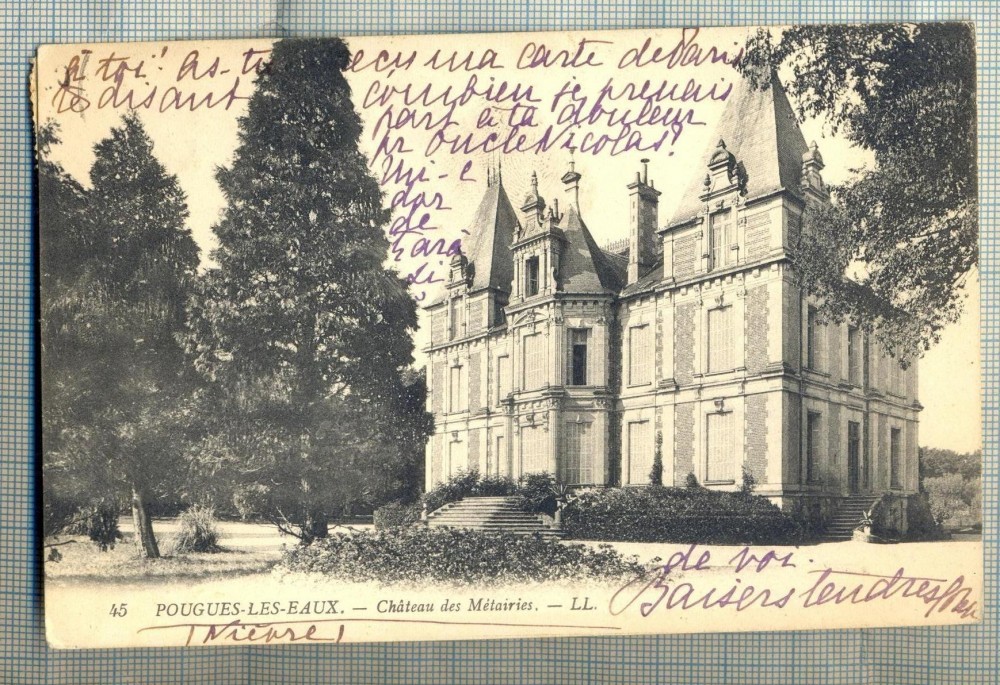 à toi! As-tu reçu ma carte de Paris
te disant combien je prenais
part à ta douleur
pr oncle Nicolas!
Mi-e
dor
de
țară
și
de voi.
Baisers tendres
45 POUGUES-LES-EAUX. — Château des Métairies. — LL.
(Nièvre)